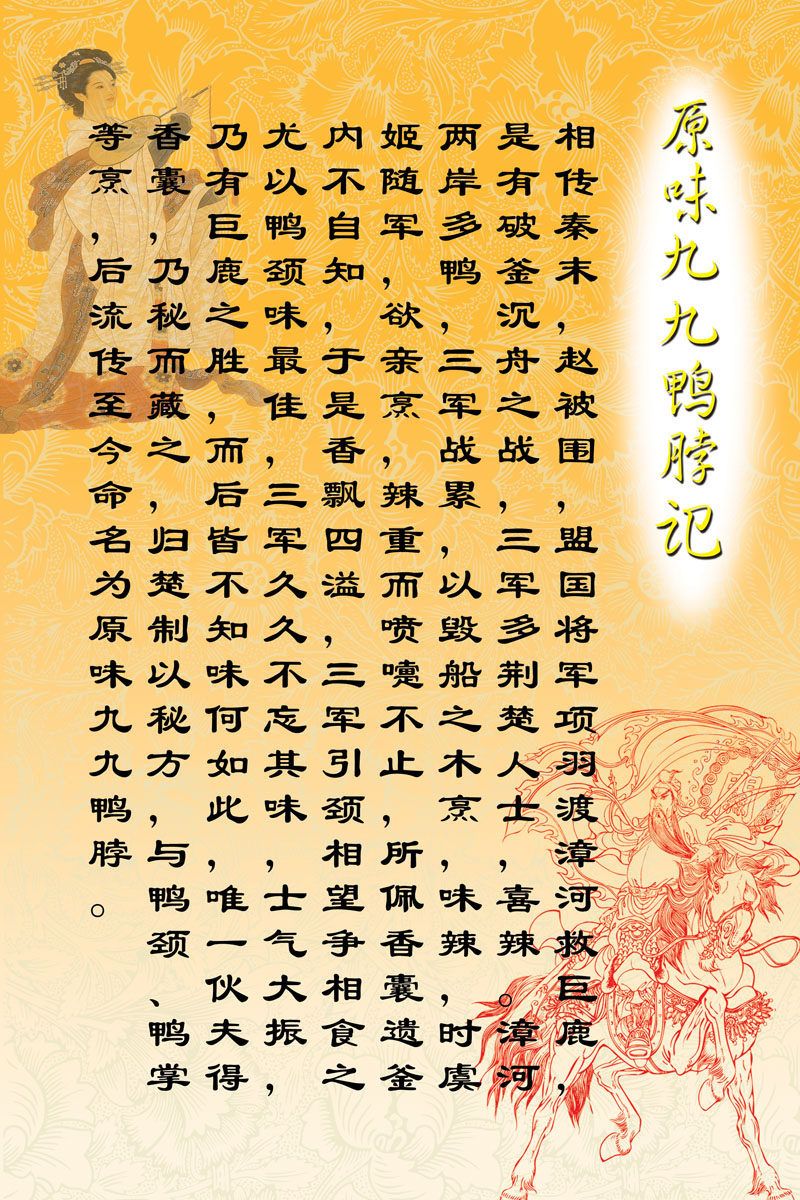 原味九九鸭脖记
相传秦末，赵被围，盟国将军项羽渡漳河救巨鹿，
是有破釜沉舟之战，三军多荆楚人士，喜辣。漳河
两岸多鸭，三军战累，以毁船之木烹，味辣，时虞
姬随军，欲亲烹，辣重而喷嚏不止，所佩香囊遗釜
内不自知，于是香飘四溢，三军引颈，相望争相食之
尤以鸭颈味最佳，三军久久不忘其味，士气大振，
乃有巨鹿之胜，而后皆不知味何如此，唯一伙夫得
香囊，乃秘而藏之，归楚制以秘方，与鸭颈、鸭掌
等烹，后流传至今命名为原味九九鸭脖。